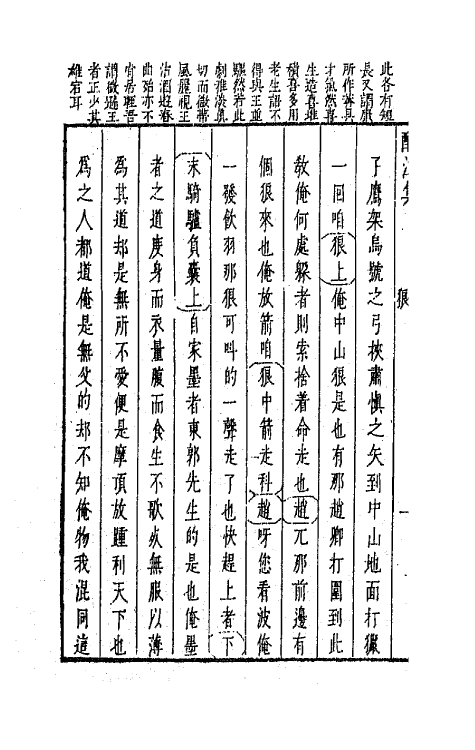 此各有短
長又謂康
所作詳具
才氣然喜
生造喜堆
積喜多用
老生語不
得與王並
驅然若此
劇雅淡真
切而微帶
風麗視王
沽酒遊春
曲殆亦不
肯居輕語
謂微遜王
者正少其
雄宕耳
酹江集
狼
一
子鷹架烏號之弓挾肅慎之矢到中山地面打獵
一回咱狼上俺中山狼是也有那趙卿打圍到此
教俺何處躲者則索捨着命走也趙兀那前邊有
個狼來也俺放箭咱狼中箭走科趙呀您看波俺
一發飲羽那狼可叫的一聲走了也快趕上者下
末騎驢負囊上自家墨者東郭先生的是也俺墨
者之道度身而衣量腹而食生不歌死無服以薄
為其道却是無所不愛便是摩頂放踵利天下也
為之人都道俺是無父的却不知俺物我混同這